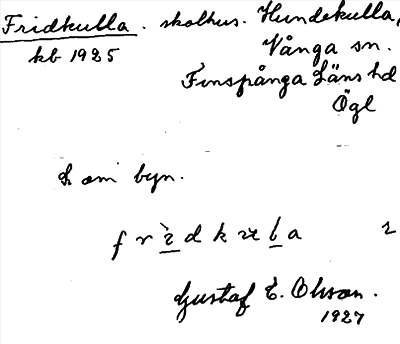 Fridkulla. skolhus. Hundekulla,
kb 1925
Vånga sn.
Finspånga Läns hd
Ögl
S om byn.
Gustaf E. Olsson.
1927